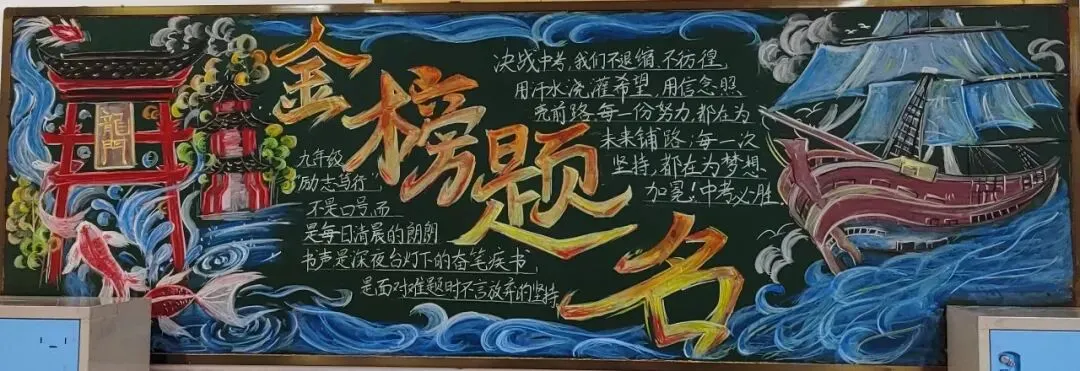 龍門
金榜题名
九年级
“励志笃行”
不是口号而
是每日清晨的朗朗
书声是深夜台灯下的奋笔疾书
是面对难题时不言放弃的坚持
决战中考,我们不退缩,不彷徨,
用汗水浇灌希望,用信念照
亮前路,每一份努力,都在为
未来铺路;每一次
坚持,都在为梦想
加冕!中考必胜